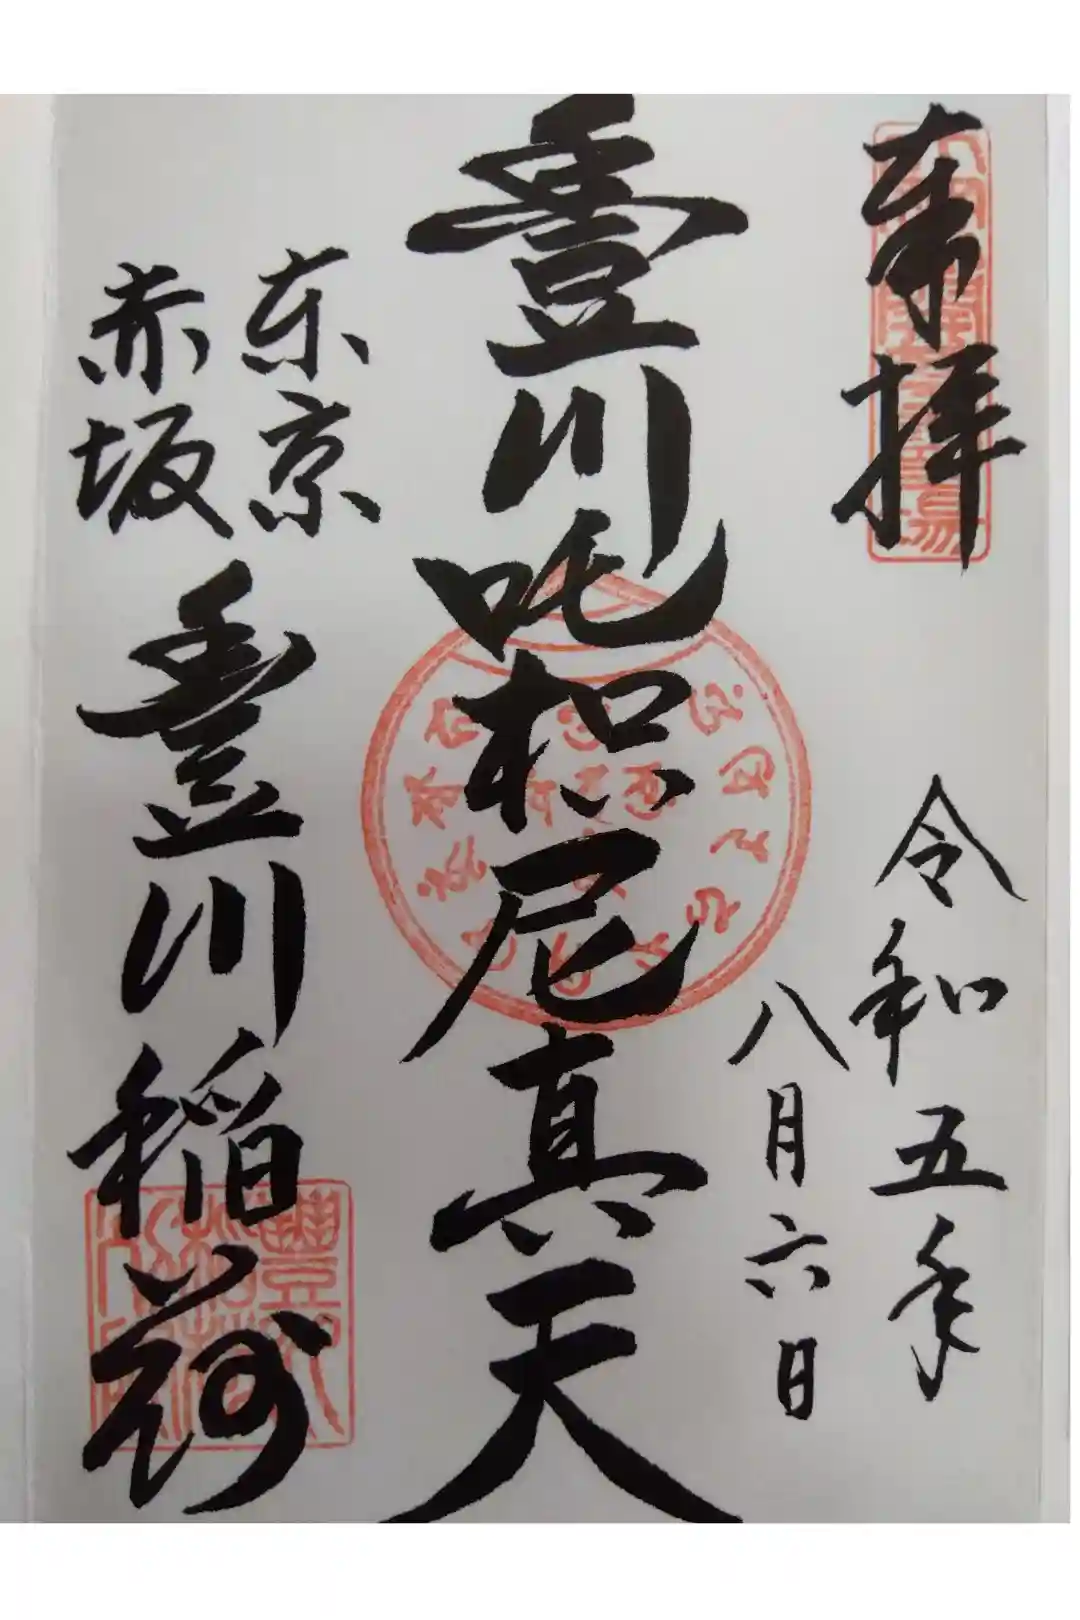 奉拝
令和五年
八月六日
豊川吒枳尼真天
東京
赤坂
豊川稲荷